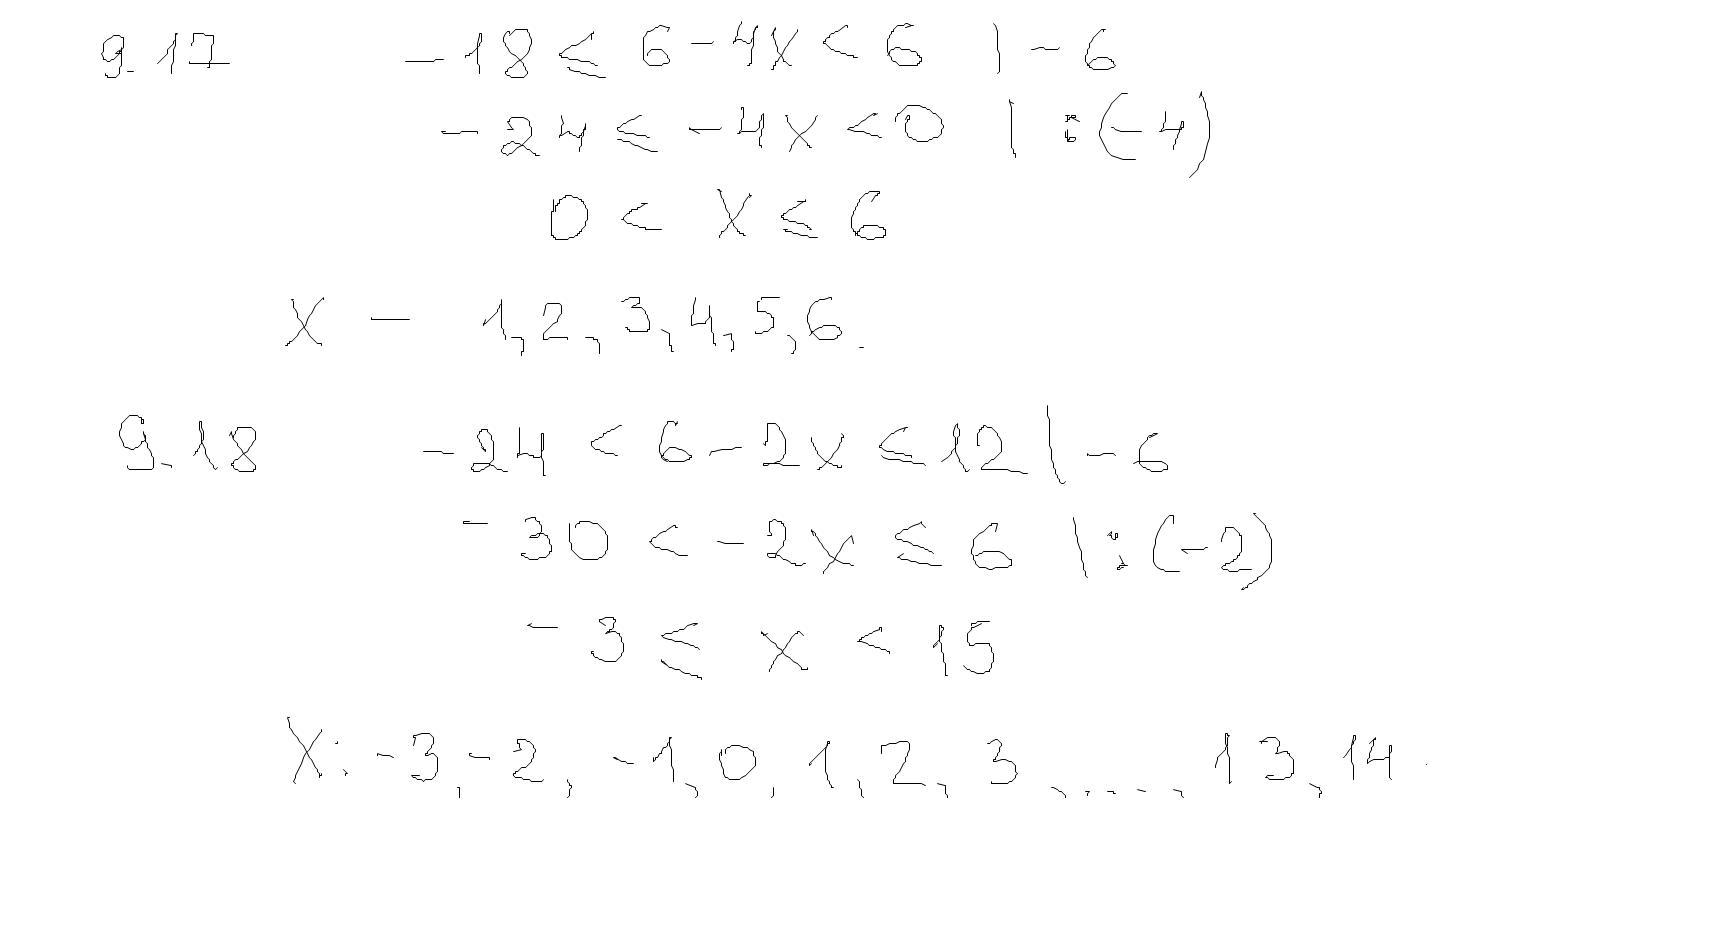 9.17 -18 ≤ 6 - 4x < 6 | - 6
-24 ≤ -4x < 0 | : (-4)
0 < x ≤ 6
x - 1, 2, 3, 4, 5, 6.
9.18 -24 < 6 - 2x ≤ 12 | - 6
-30 < -2x ≤ 6 | : (-2)
-3 ≤ x < 15
x: -3, -2, -1, 0, 1, 2, 3, ...., 13, 14.